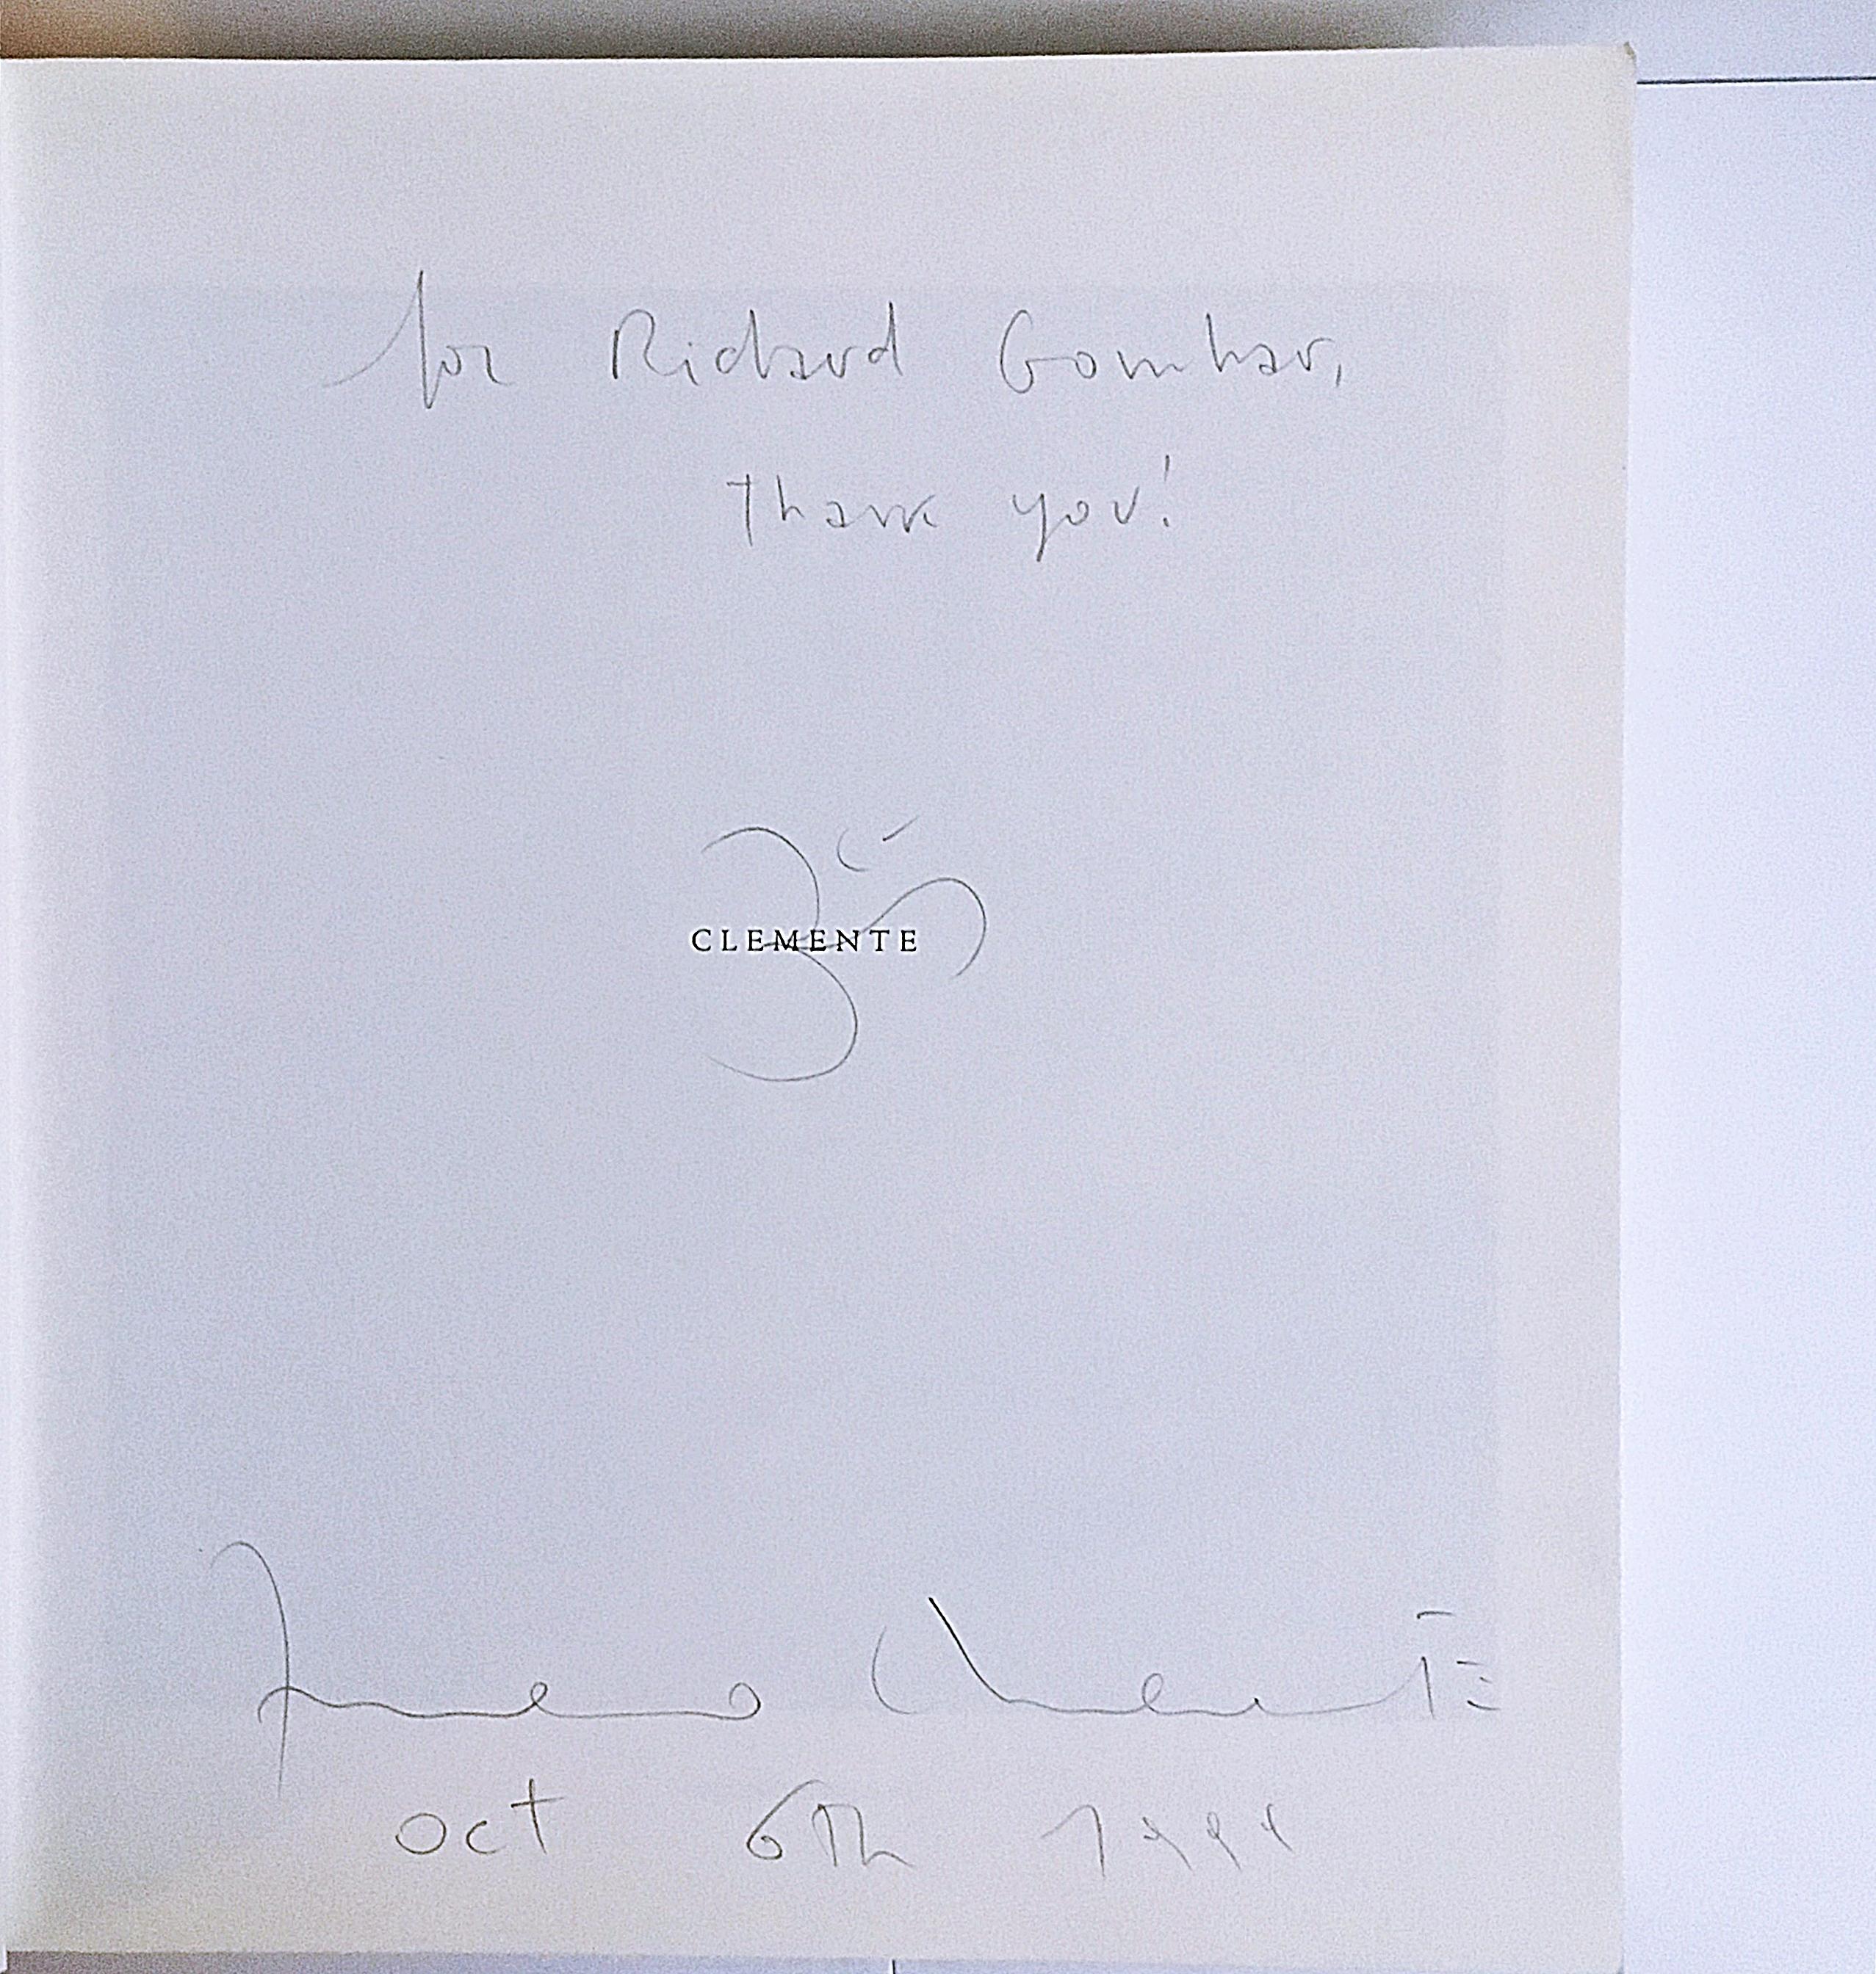 for Richard Gombar,
Thank you!
ॐ
CLEMENTE
Francesco Clemente
oct 6th 1999